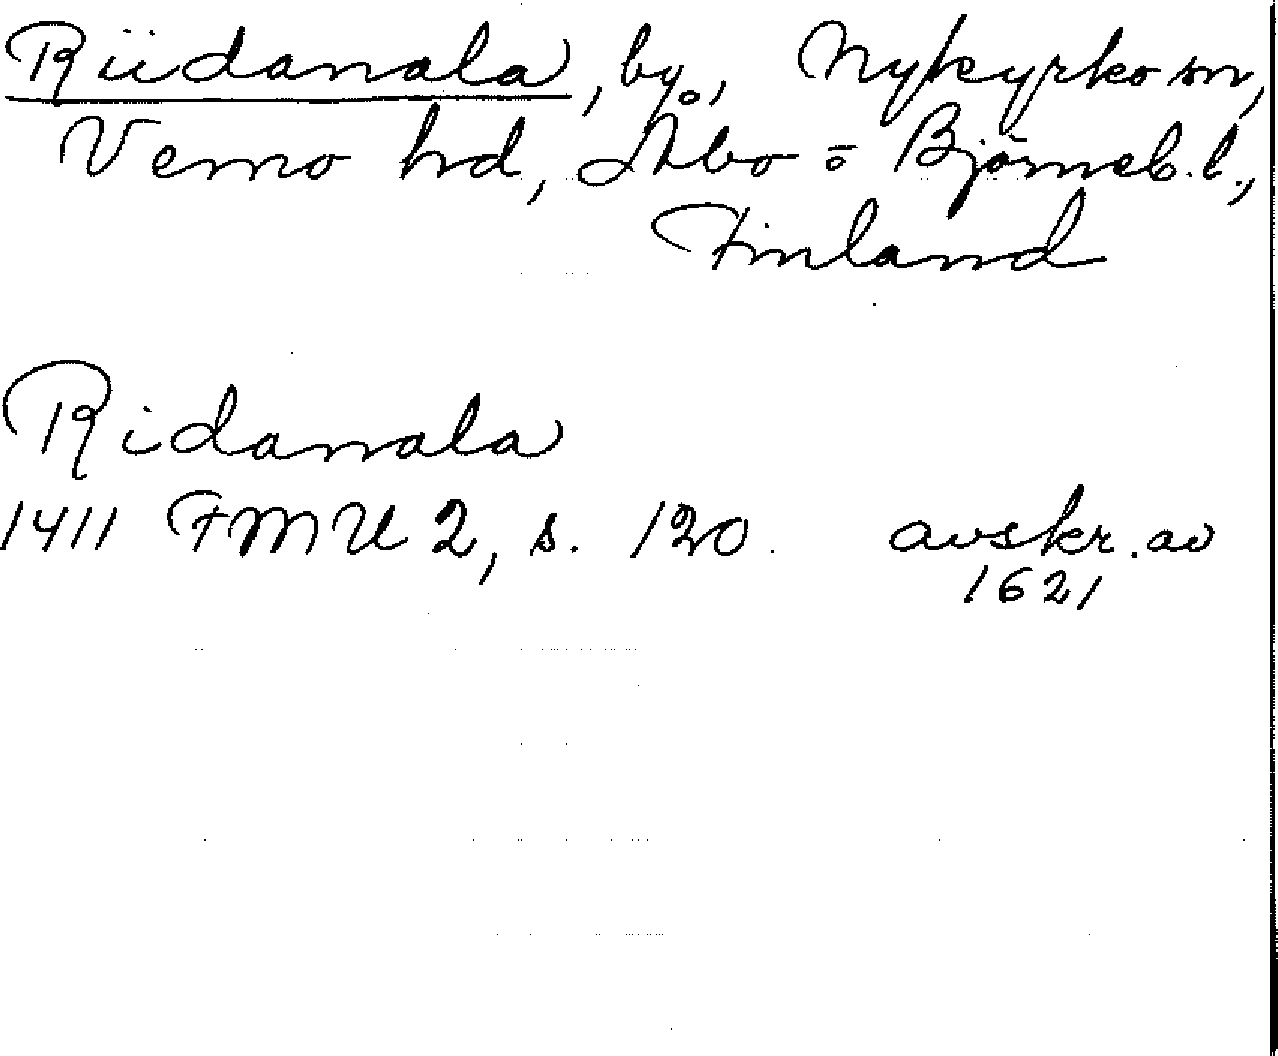 Riidanala, by, Nykyrko sn,
Vemo hd, Åbo o Björneb. l.,
Finland
Ridanala
1411 FMU 2, s. 120. avskr. av
1621